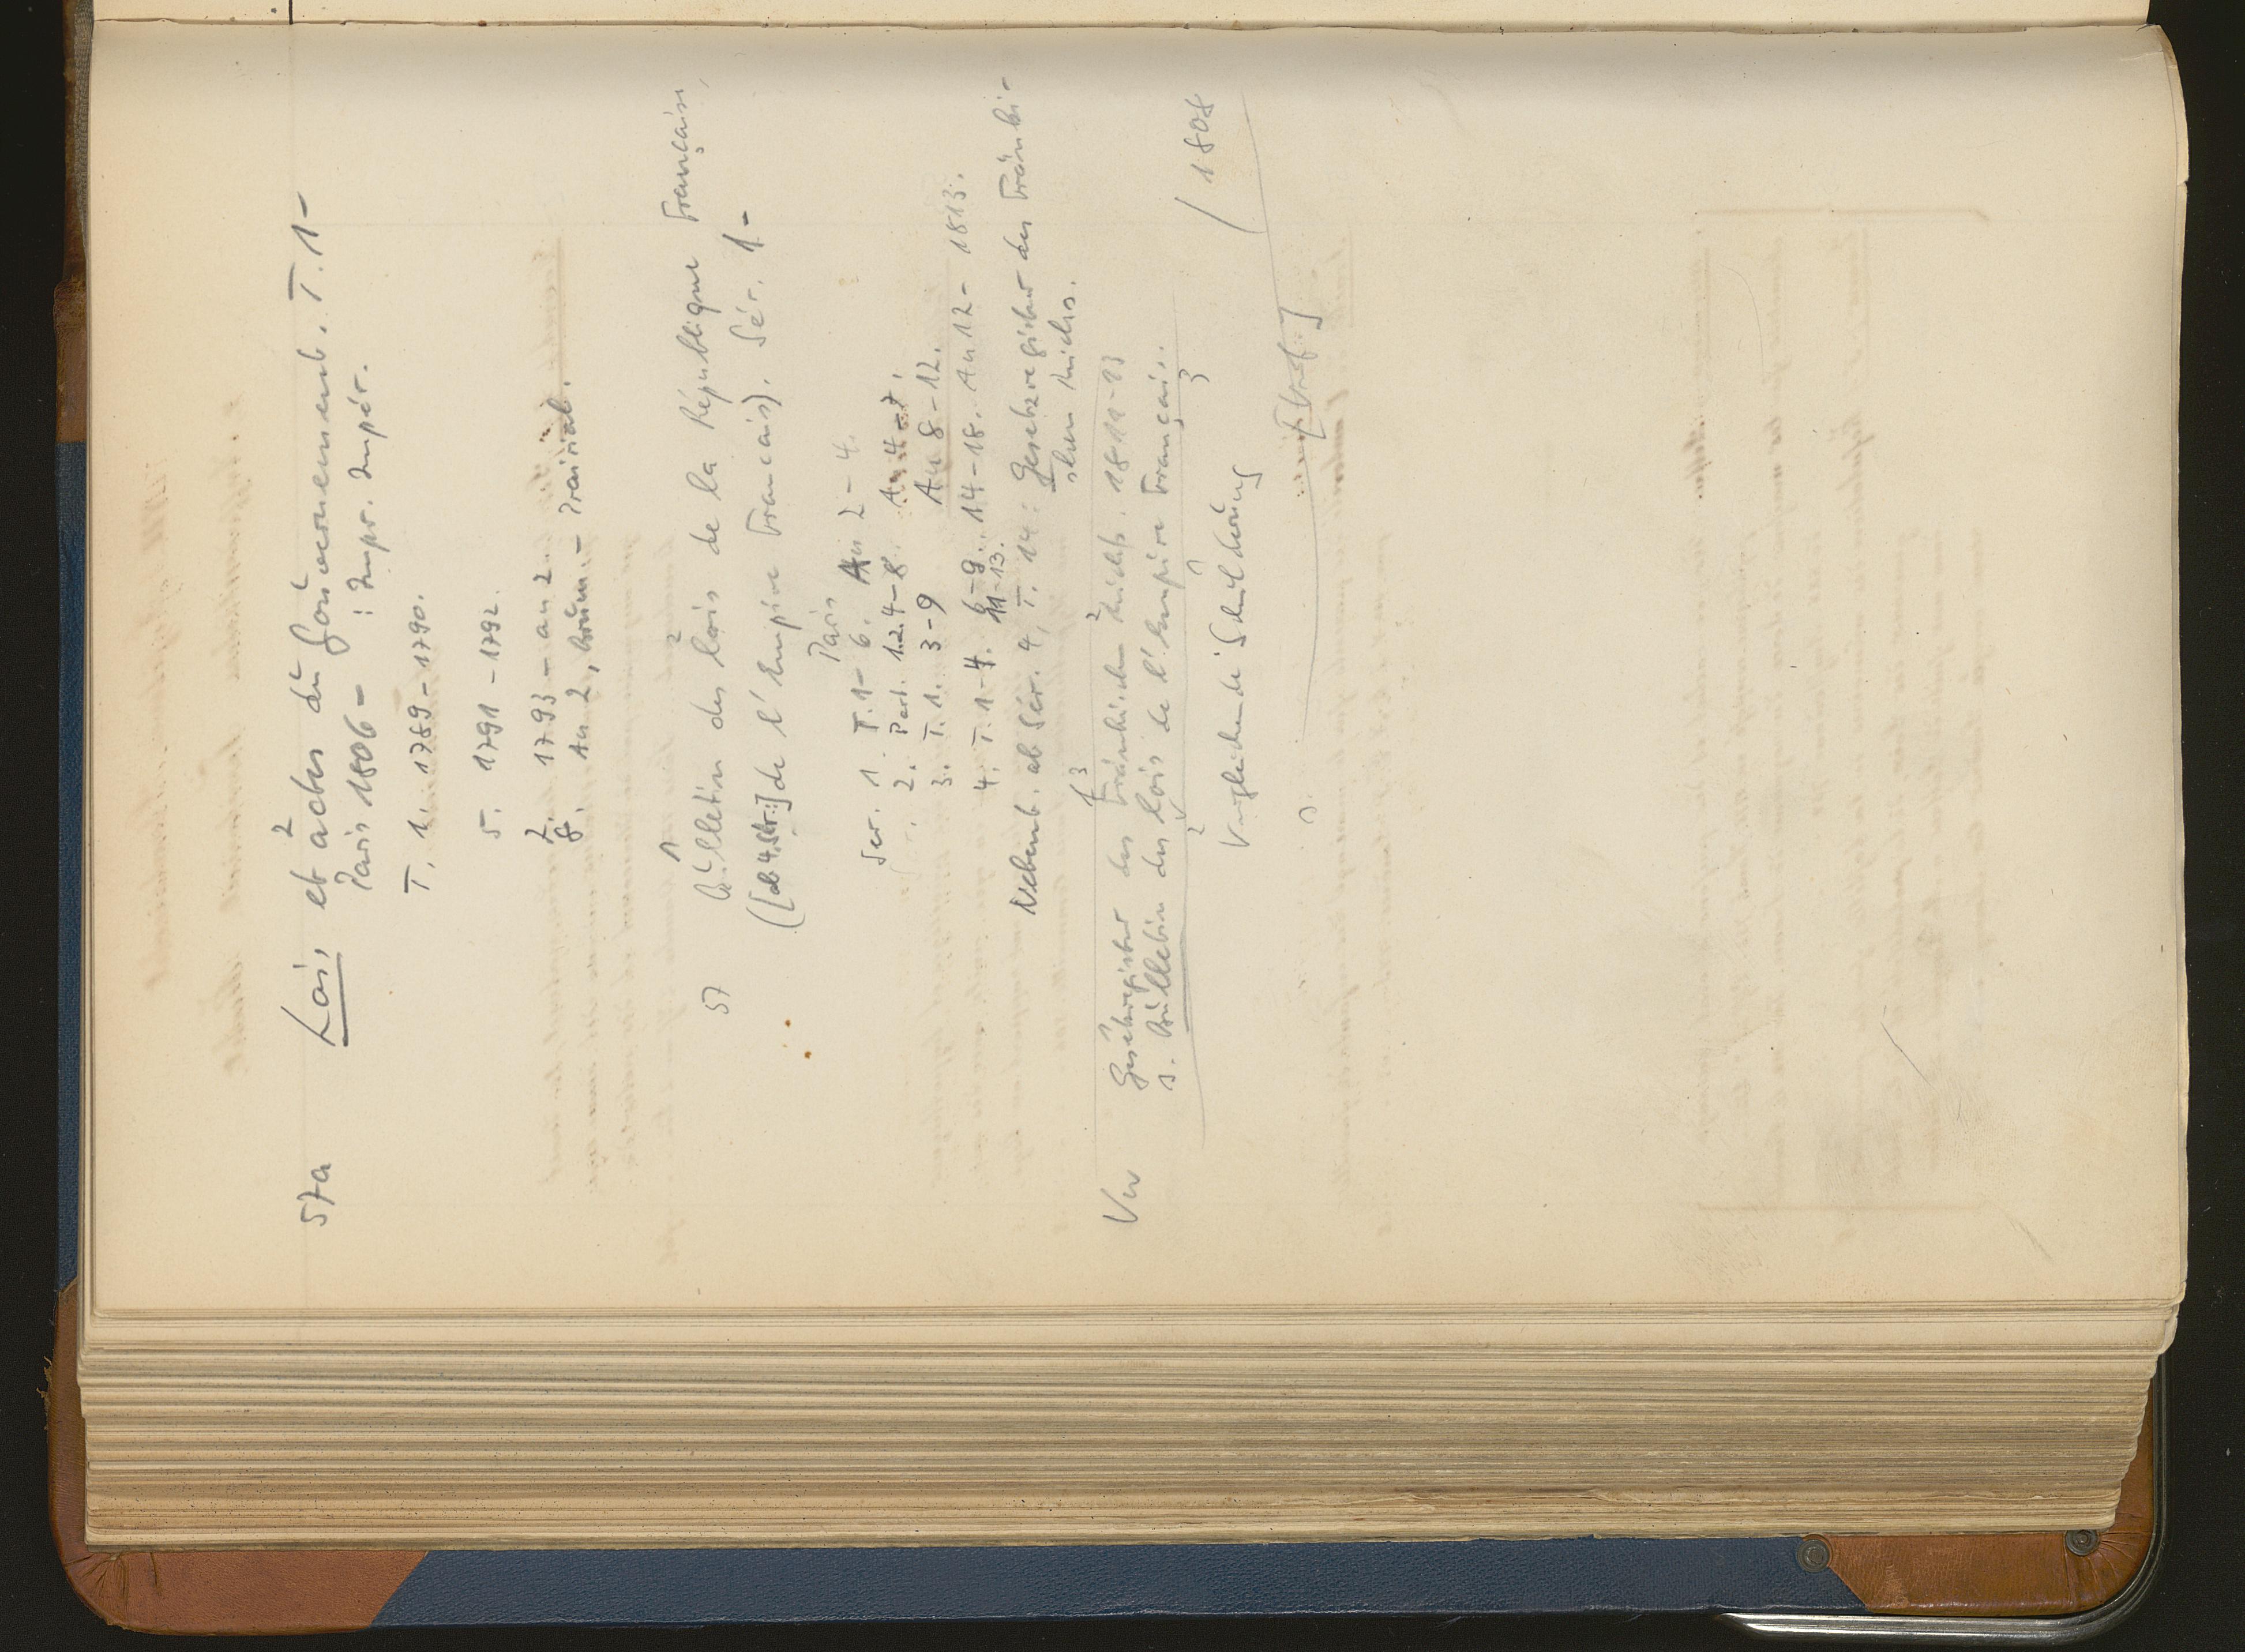 57a Lois et actes du Gouvernement. T. 1-
Paris 1806- : Impr. Impér.
T. 1. 1789-1790.
5. 1791-1792.
7. 1793 - an 2.
8. An 2, brum. - Prairial.
57 Bulletin des lois de la République Française,
([ab 4. Sér.:] de l'Empire Français). Sér. 1-
Paris
Ser. 1. T. 1-6. An 2-4.
2. Part. 1.2.4-8. An 4-7.
3. T. 1. 3-9 An 8-12.
4. T. 1-4. 6-9. 11-13. 14-18. An 12-1813.
Nebent. ab Sér. 4, T. 14: Gesetzregister des Fränki-
schen Reichs.
Vw Gesetzregister des Fränkischen Reichs. 1811-13
s. Bulletin des lois de l'Empire Français.
Vergleichende Schilderung
/ 1808